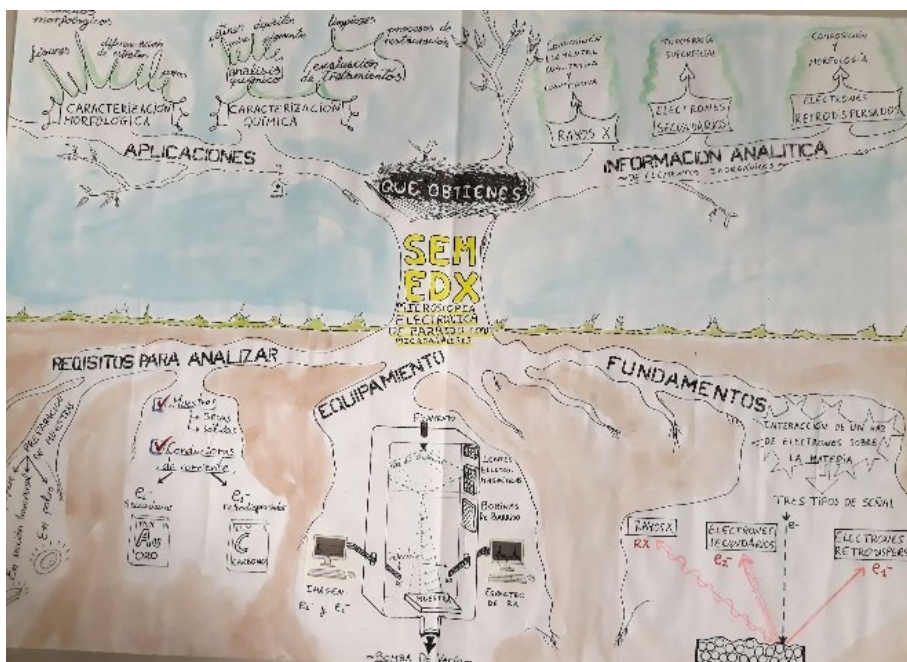 morfológicos
fisuras
diferenciación
de estratos
CARACTERIZACIÓN
MORFOLÓGICA
análisis
químico
limpiezas
procesos de
restauración
evaluación
de tratamientos
CARACTERIZACIÓN
QUÍMICA
APLICACIONES
QUE OBTIENES
COMPOSICIÓN
ELEMENTAL
CUALITATIVA
Y
CUANTITATIVA
RAYOS X
TOPOGRAFÍA
SUPERFICIAL
ELECTRONES
SECUNDARIOS
COMPOSICIÓN
Y
MORFOLOGÍA
ELECTRONES
RETRODISPERSADOS
INFORMACIÓN ANALÍTICA
ELEMENTOS INORGÁNICOS
SEM
EDX
MICROSCOPIA
ELECTRÓNICA
DE BARRIDO CON
MICROANÁLISIS
REQISITOS PARA ANALIZAR
PREPARACIÓN
DE MUESTRAS
En sección transversal
En polvo
Muestras
Secas
Sólidas
Conductoras
de corriente
e-
Secundarios
ORO
e-
retrodispersados
C
CARBONO
EQUIPAMIENTO
FILAMENTO
LENTES
ELECTRO
MAGNÉTICAS
BOBINAS
DE BARRIDO
MUESTRA
IMAGEN
ESPECTRO
DE RX
BOMBA DE VACÍO
FUNDAMENTOS
INTERACCIÓN DE UN HAZ
DE ELECTRONES SOBRE
LA MATERIA
TRES TIPOS DE SEÑAL
e-
RAYOS X
RX
ELECTRONES
SECUNDARIOS
e2-
ELECTRONES
RETRODISPERS
e1-